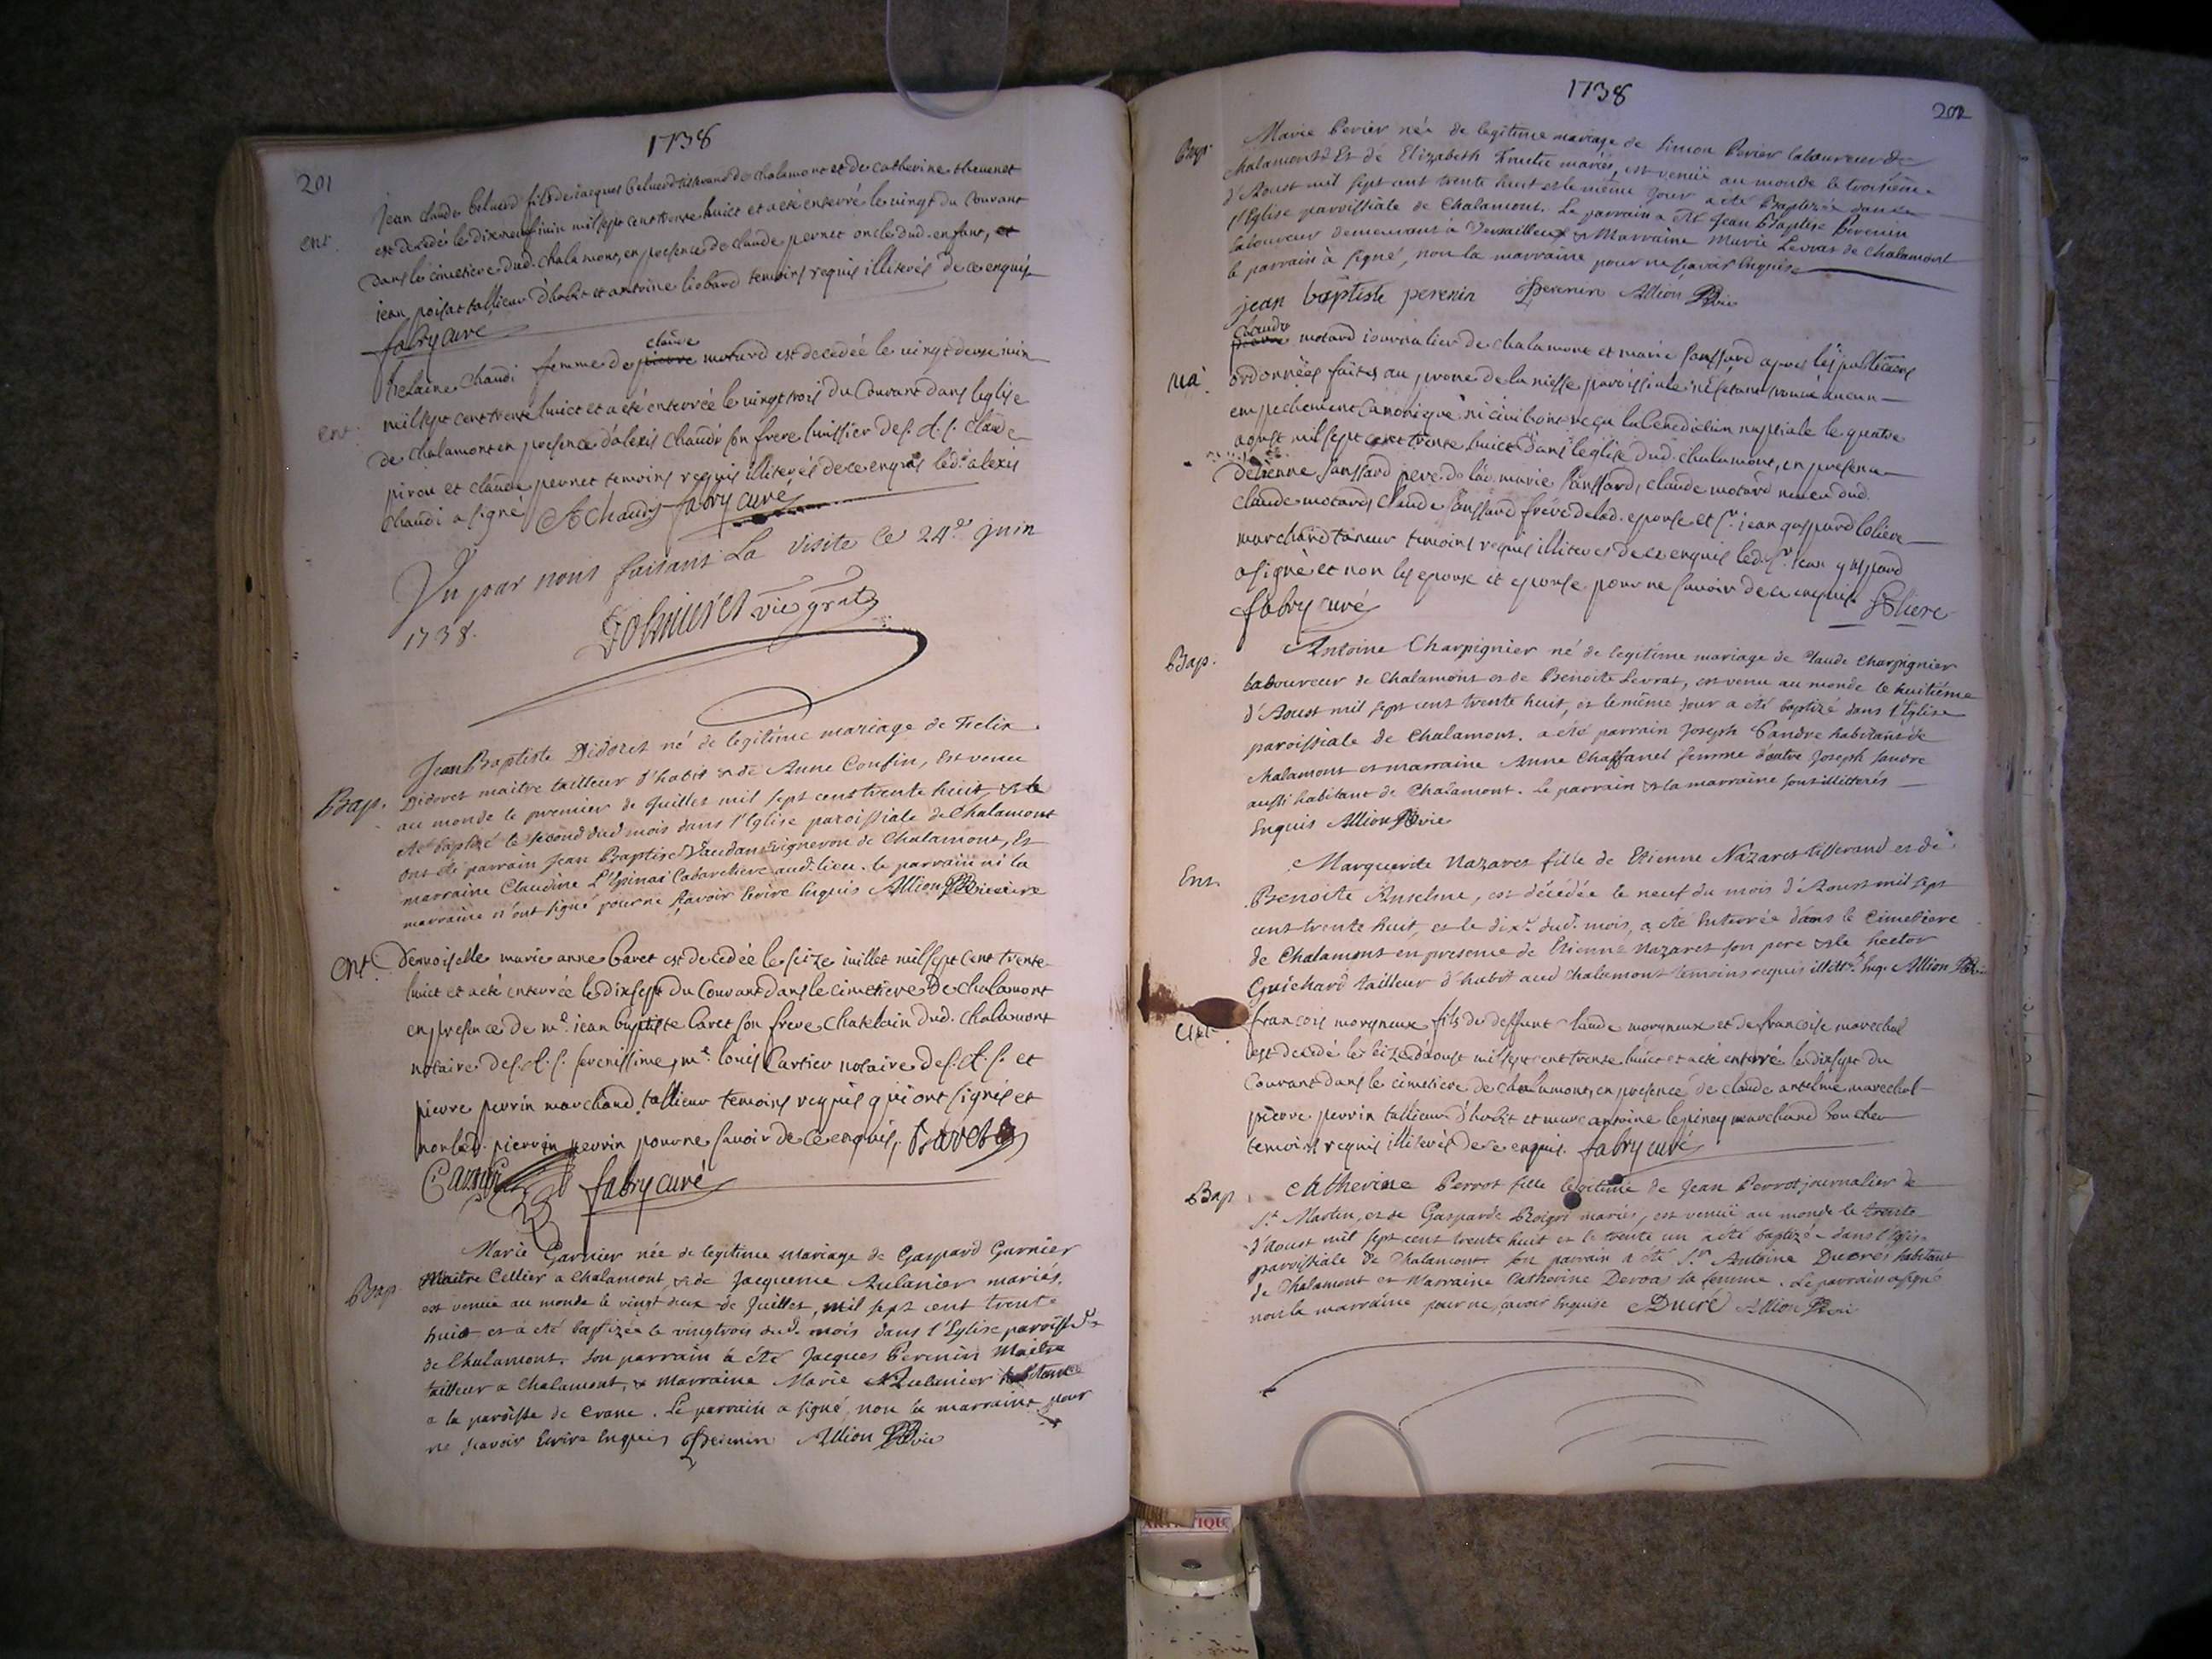 1738
201
ent.
jean claude beluerd fils de jacques beluerd tisserand de chalamont et de catherine theuenet
est decedé le dixneuf iuin mil sept cent trente huict et a eté enterré le uingt du Courant
Dans le cimetiere dud. chalamont, en presence de claude pernet oncle dud. enfant, et
iean poisat tallieur d'habit et antoine liobard temoins requis illiterés de ce enquis
fabry curé
claude
ent.
helaine Chaudi femme de pierre motard est decedée le uingt deux iuin
mil sept cent trente huict et a eté enterrée le uingt trois du Courant dans leglise
de chalamont en presence d'alexis Chaudi son frere huissier de s. A. s. claude
pirou et claude pernet temoins requis illiterés de ce enquis led. alexis
Chaudi a signé AChaudy fabry curé
Vu par nous faisant La Visite ce 24.e juin
1738. vic grat
Bap.
Jean Baptiste Didoret né de legitime mariage de Felix
Didoret maitre tailleur d'habit & de Anne Confin, Est venu
au monde le premier de Juillet mil sept cent trente huit & a
été baptizé le second dud mois dans l'Eglise paroissiale de Chalamont
ont été parrain Jean Baptiste Vaudan vigneron de Chalamont, Et
marraine Claudine L'Epinai Cabaretiere aud. lieu. le parrain ni la
marraine n'ont signé pour ne sçavoir Ecrire Enquis Allion vicaire
ent.
Demoiselle marie anne Cavet est decedée le seize iuillet mil sept Cent trente
huict et a eté enterrée le dixsept du Courant dans le cimetiere De chalamont
en presence de m.e iean baptiste Cavet son frere Chatelain dud. chalamont
notaire de s. A. s. serenissime, m.e louis Cartier notaire de s. A. s. et
pierre perrin marchand tallieur temoins requis qui ont signés et
non led. pierre perrin pour ne sauoir de ce enquis,
fabry curé
Bap.
Marie Garnier née de legitime mariage de Gaspard Garnier
Maitre Cellier a Chalamont, & de Jacqueme Aulanier mariés,
est venue au monde le vingt deux de Juillet, mil sept cent trente
huit et a été baptizée le vingtrois dud. mois dans l'Eglise paroiss.le
de Chalamont. Son parrain a été Jacques Perenin Maitre
tailleur a Chalamont, & marraine Marie Aulanier habitante
a la paroisse de Crane. Le parrain a signé, non la marraine pour
ne sçavoir Ecrire Enquis Perenin Allion vic
1738
202
Bap.
Marie Perier née de legitime mariage de Simon Perier laboureur de
Chalamont & Et de Elizabeth mariés, est venüe au monde le troisième
d'Aoust mil sept cent trente huit et le même Jour a été Baptizée dans
l'Eglise paroissiale de Chalamont. Le parrain a été Jean Baptiste Perenin
laboureur demeurant à Versailleux & Marraine Marie Levrat de Chalamont
le parrain à signé, non la marraine pour ne sçavoir Enquise
jean baptiste perenin Perenin Allion vic
Claude
ma.
pierre motard iournalier de chalamont et marie sanssard apres les publications
ordonnées faites au prone de la messe paroissiale ne s'etant trouué aucun
empechement Canonique ni ciuil ont reçu la benediction nuptiale le quatre
aoust mil sept cent trente huict dans l'eglise dud. chalamont, en presence
d'etienne sanssard pere de lad. marie sanssard, claude motard neueu dud.
claude motard, claude sanssard frere de lad. epouse et s.r iean gaspard
marchand taneur temoins requis illiterés de ce enquis led. s.r iean gaspard
a signé et non les epoux et epouse pour ne sauoir de ce enquis
fabry curé
Bap.
Antoine Charpignier né de legitime mariage de Claude Charpignier
laboureur de Chalamont et de Benoite Levrat, est venu au monde le huitième
d'Aoust mil sept cent trente huit, et le même Jour a été baptizé dans l'Eglise
paroissiale de Chalamont. a été parrain Joseph Sandre habitant de
Chalamont et marraine Anne Chaffanel femme d'autre Joseph Sandre
aussi habitant de Chalamont. Le parrain & la marraine sont illitterés
Enquis Allion vic
Ent.
Marguerite Nazaret fille de Etienne Nazaret tisserand et de
Benoite Anselme, est décédée le neuf du mois d'Aoust mil sept
cent trente huit, et le dix.e dud. mois, a été Enterrée dans le Cimetiere
de Chalamont en presence de Etienne Nazaret son pere & de hector
Guichard tailleur d'habit aud Chalamont temoins requis illitt. Enq. Allion
Ent.
francois morgneux fils de deffunt Claude morgneux et de francoise marechal
est decedé le seize d'aoust mil sept cent trente huict et a eté enterré le dixsept du
Courant dans le cimetiere de chalamont, en presence de claude anselme marechal
pierre perrin tallieur d'habit et marc antoine lepiney marchand boucher
temoins requis illiterés de ce enquis. fabry curé
Bap.
Catherine Perrot fille legitime de Jean Perrot journalier de
S.t Martin, et de Gasparde mariés, est venüe au monde le trente
d'Aoust mil sept cent trente huit et le trente un a été baptizée dans l'Eglise
paroissiale de Chalamont. Son parrain a été S.r Antoine Ducré habitant
de Chalamont et Marraine Catherine Devoas sa femme. Le parrain a signé
non la marraine pour ne sçavoir Enquise ADucré Allion vic